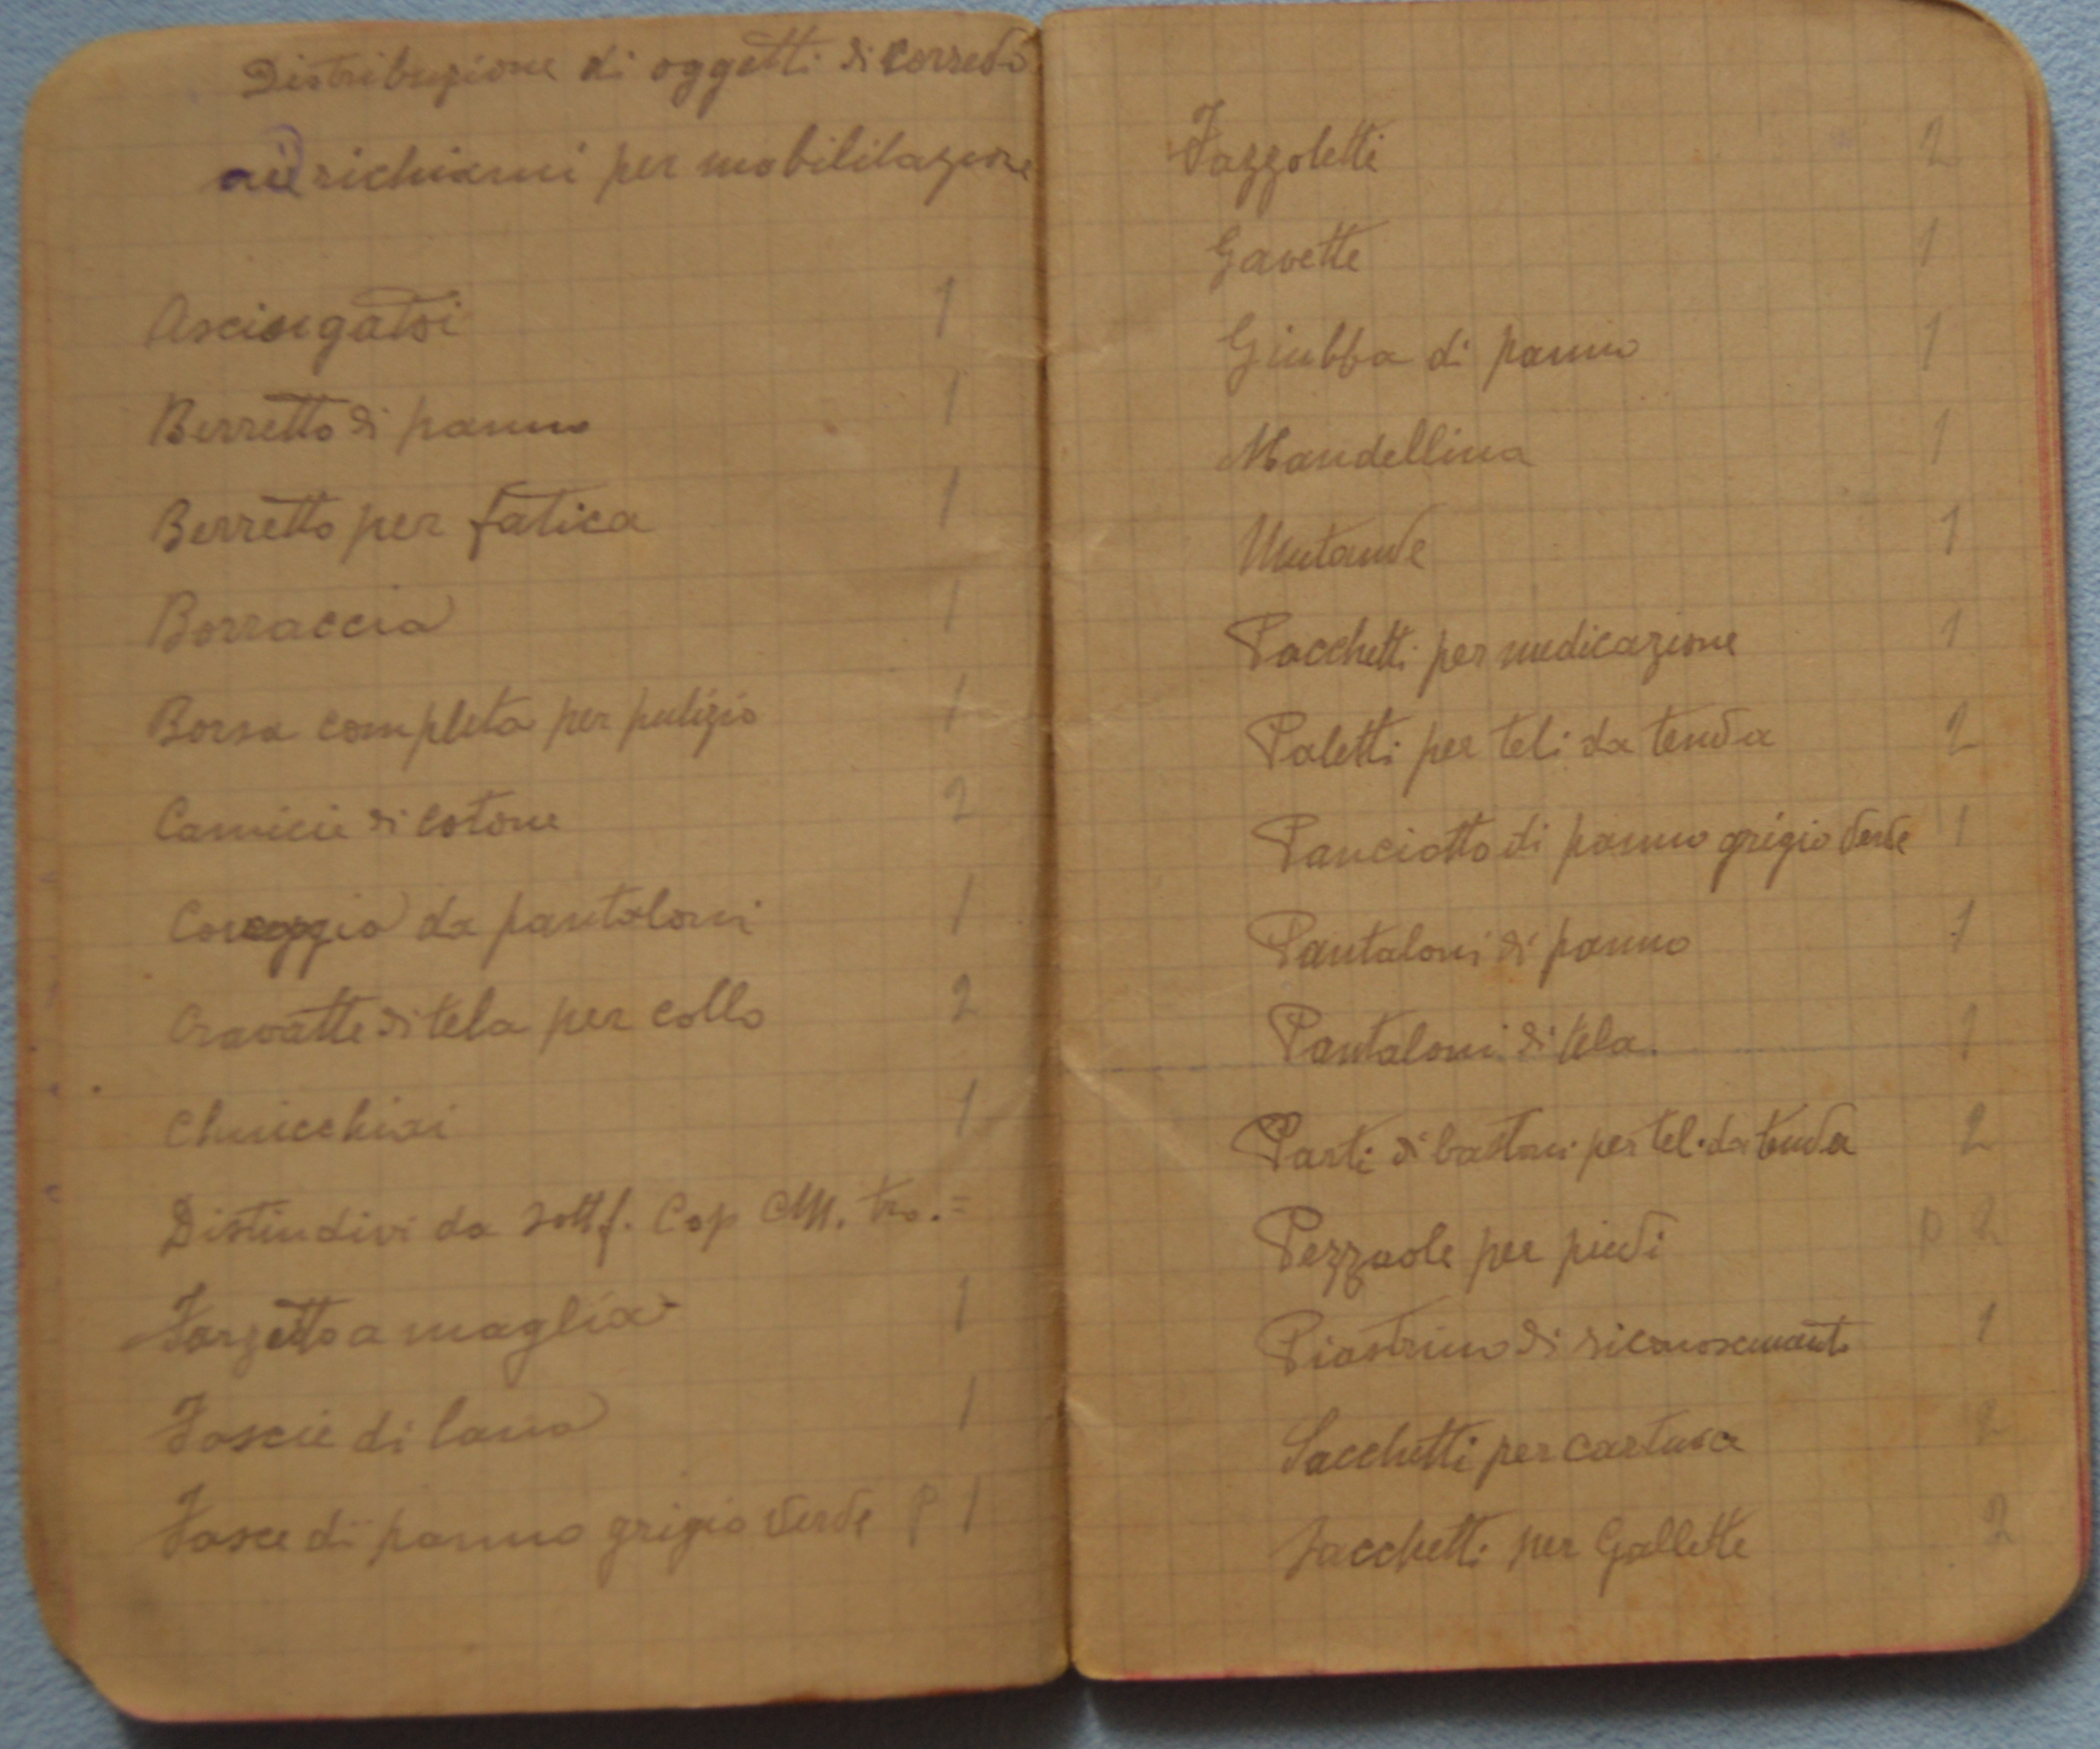 Distribuzione di oggetti di corredo
ai richiami per mobilitazione
Asciugatoi 1
Berretto di panno 1
Berretto per fatica 1
Borraccia 1
Borsa completa per pulizia 1
Camicie di cotone 2
Coreggia da pantaloni 1
Cravatte di tela per collo 2
Chuicchiai 1
Distindivi da sottf. Cap M. tro. =
Farzetto a maglia 1
Fascie di lana 1
Fasce di panno grigio verde P 1
Fazzoletti 2
Gavette 1
Giubba di panno 1
Mandellina 1
Mutande 1
Pacchetti per medicazione 1
Paletti per teli da tenda 2
Panciotto di panno grigio verde 1
Pantaloni di panno 1
Pantaloni di tela 1
Parti di bastoni per tel. da tenda 2
Pezzuole per piedi P 2
Piastrino di riconoscimento 1
Sacchetti per cartucce 2
Sacchetti per Gallette 2